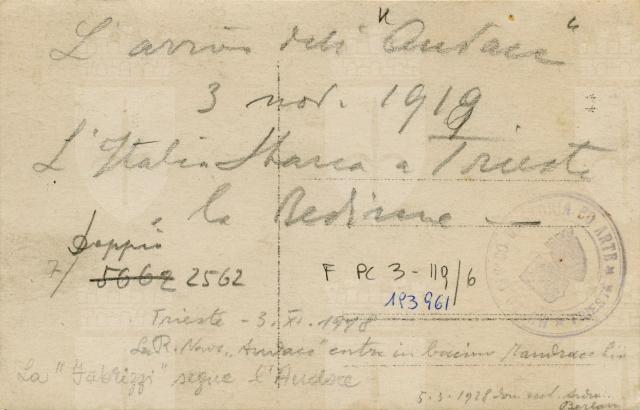 L'arrivo dell' "Audace"
3 nov. 1919
L'Italia sbarca a Trieste
la Redime —
doppio
7/ 5662 2562
F PC 3-119/6
193961
Trieste - 3. XI. 1918
La R. Nave "Audace" entra in bacino Mandracchio
La "Fabrizi" segue l'Audace
5-3-1928
Berlam
STORIA ED ARTE